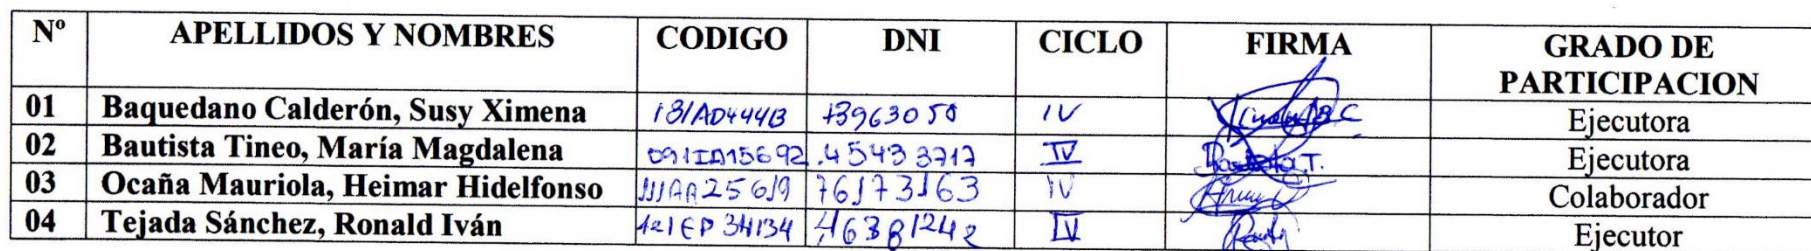 Nº APELLIDOS Y NOMBRES CODIGO DNI CICLO FIRMA GRADO DE
PARTICIPACION
01 Baquedano Calderón, Susy Ximena 131AD444B 73963050 IV Ejecutora
02 Bautista Tineo, María Magdalena 091IA15692 45433717 IV Ejecutora
03 Ocaña Mauriola, Heimar Hidelfonso 111AA25619 76173163 IV Colaborador
04 Tejada Sánchez, Ronald Iván 121EP34134 46381242 IV Ejecutor